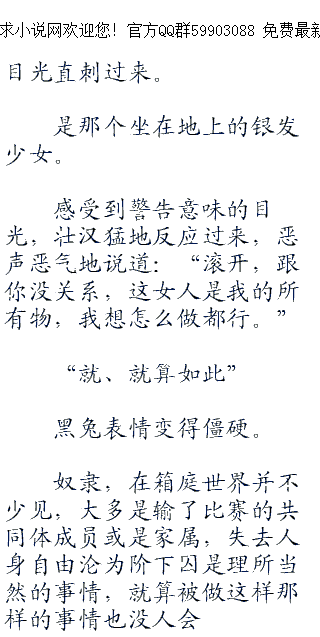 求小说网欢迎您！官方QQ群59903088 免费最新
目光直刺过来。
是那个坐在地上的银发
少女。
感受到警告意味的目
光，壮汉猛地反应过来，恶
声恶气地说道：“滚开，跟
你没关系，这女人是我的所
有物，我想怎么做都行。”
“就、就算如此”
黑兔表情变得僵硬。
奴隶，在箱庭世界并不
少见，大多是输了比赛的共
同体成员或是家属，失去人
身自由沦为阶下囚是理所当
然的事情，就算被做这样那
样的事情也没人会